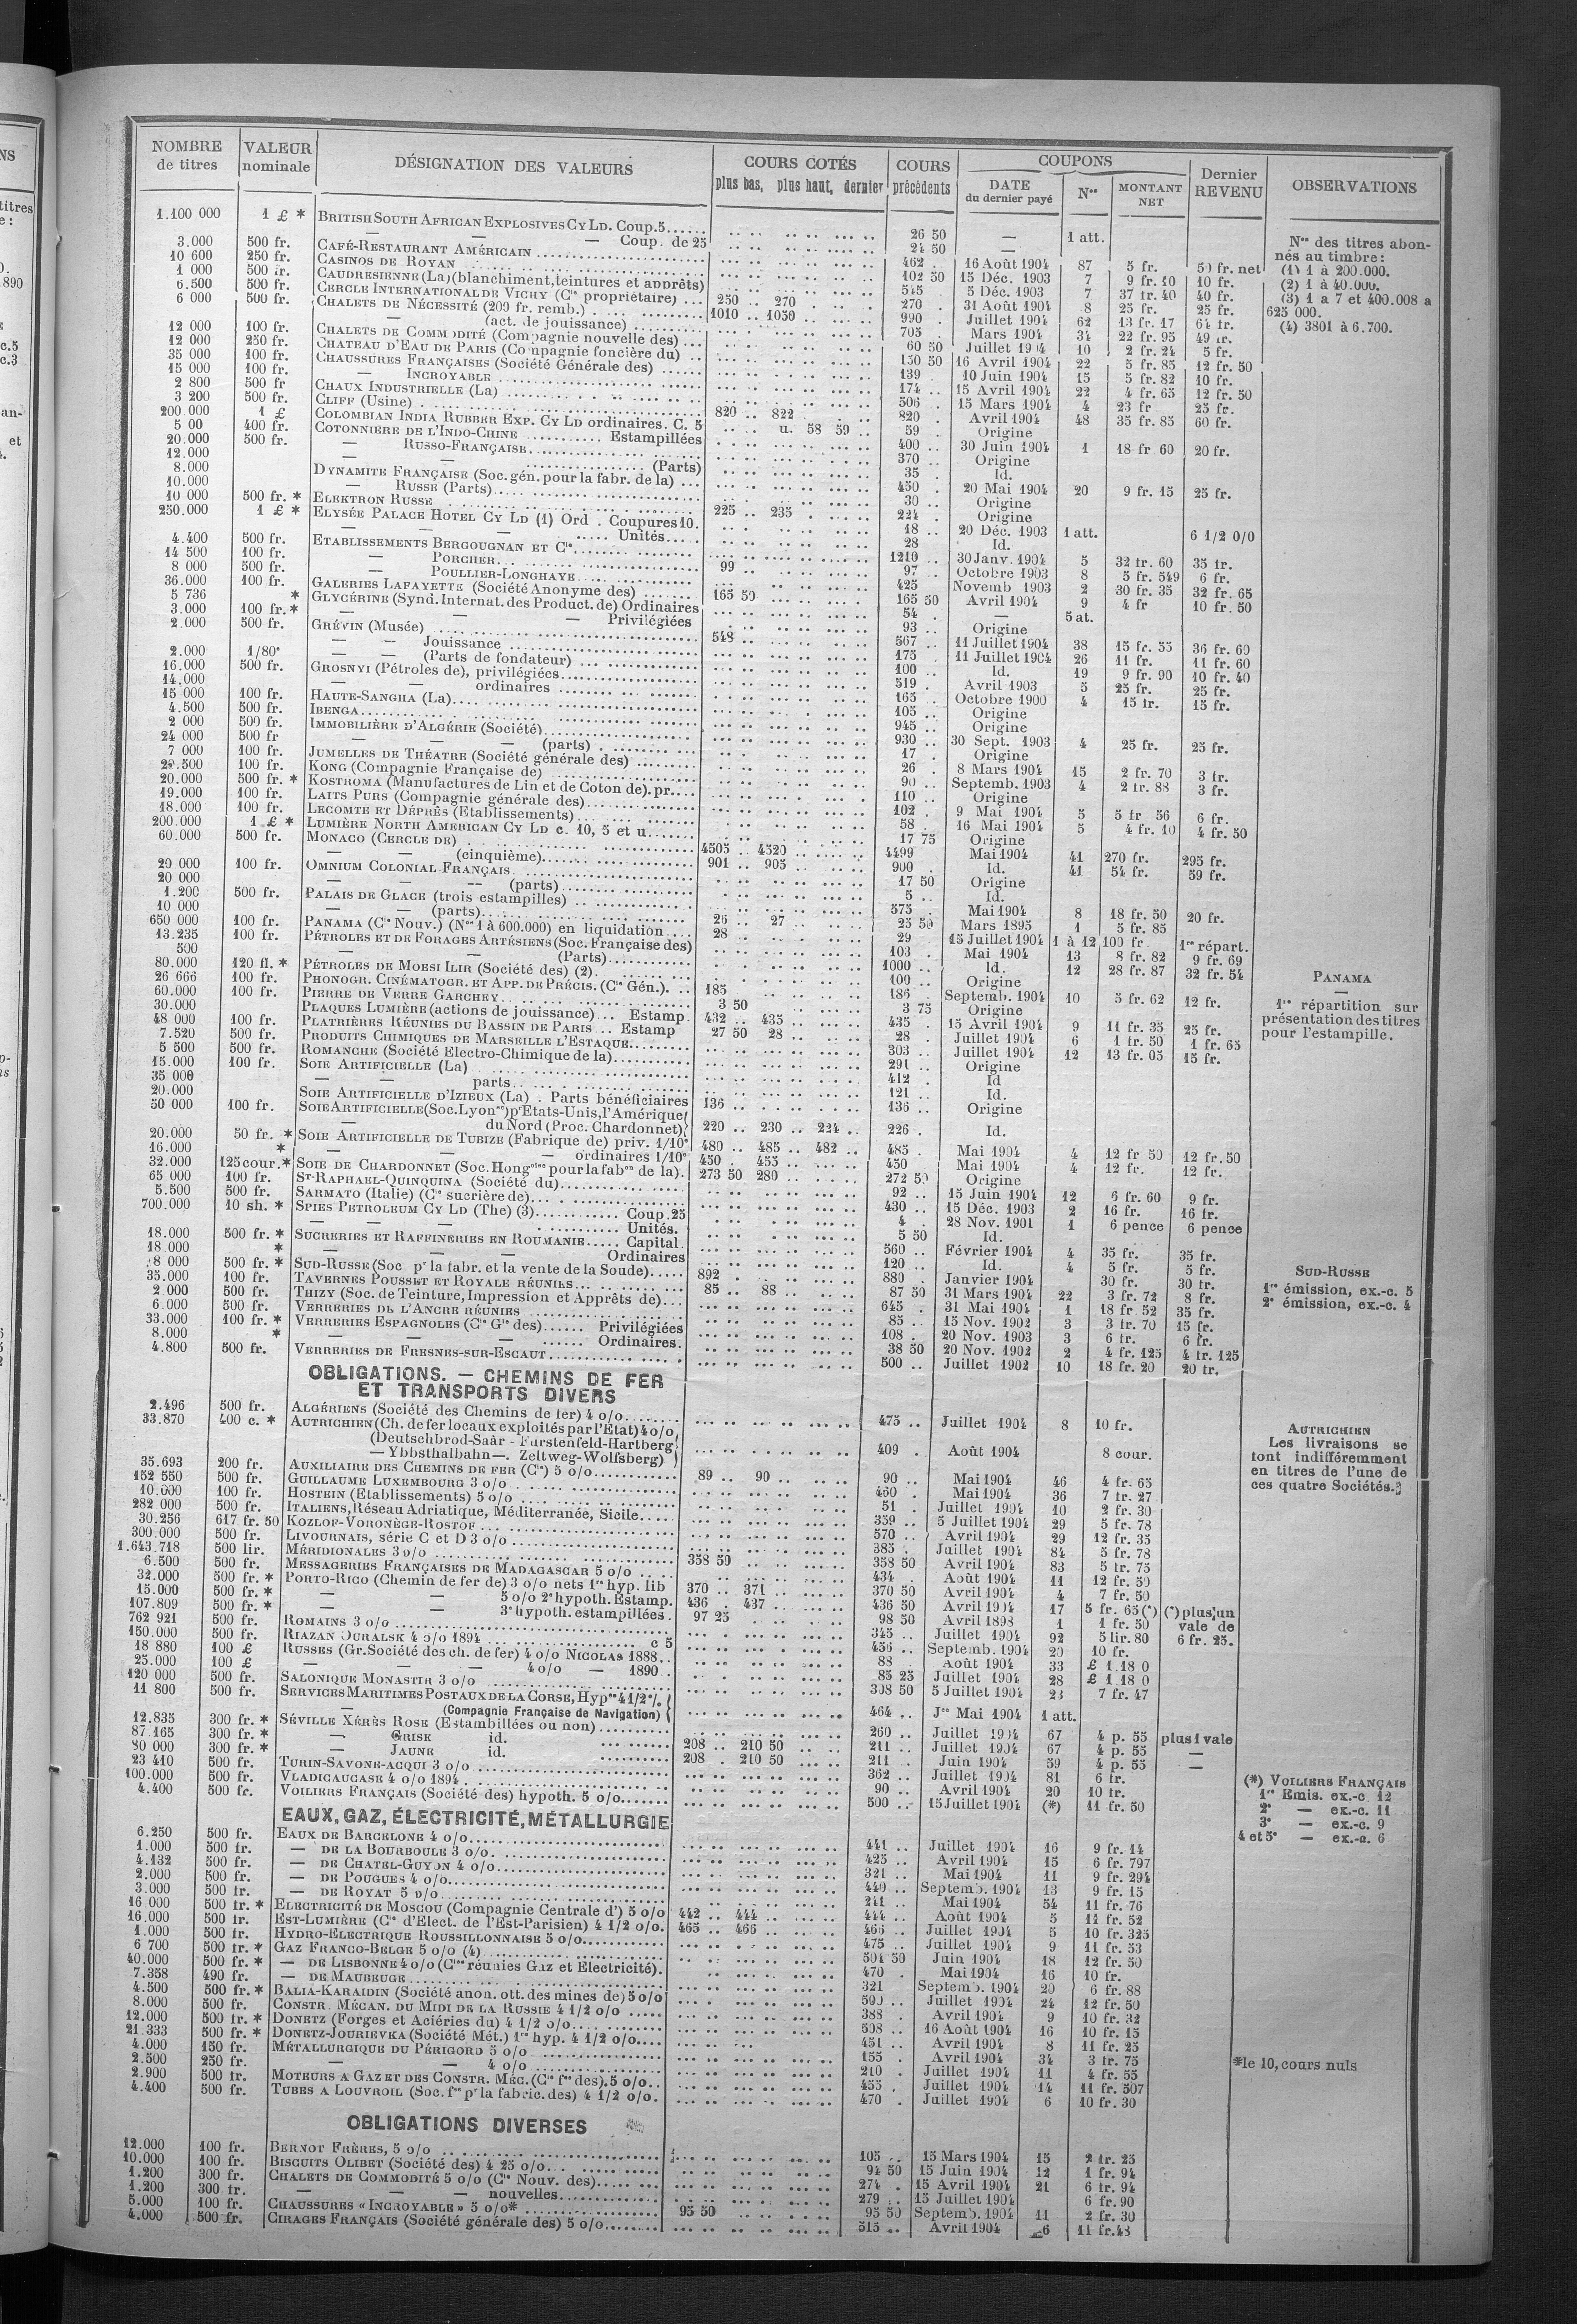 NOMBRE de titres | VALEUR nominale | DÉSIGNATION DES VALEURS | COURS COTÉS plus bas, plus haut, dernier | COURS précédents | COUPONS DATE du dernier payé | Nos | MONTANT NET | Dernier REVENU | OBSERVATIONS
1.100 000 1 £ * BRITISH SOUTH AFRICAN EXPLOSIVES CY LD. Coup. 5 26 50 — 1 att.
— — — Coup. de 25 24 50 —
3.000 500 fr. CAFÉ-RESTAURANT AMÉRICAIN 462 16 Août 1904 87 5 fr. 50 fr. net
10 600 250 fr. CASINOS DE ROYAN 102 50 15 Déc. 1903 7 9 fr. 10 10 fr.
1 000 500 fr. CAUDRESIENNE (La) (blanchiment, teintures et apprêts) 515 5 Déc. 1903 7 37 fr. 40 40 fr.
6.500 500 fr. CERCLE INTERNATIONAL DE VICHY (Cie propriétaire) 250 270 270 31 Août 1904 8 25 fr. 25 fr.
6 000 500 fr. CHALETS DE NÉCESSITÉ (209 fr. remb.) 1010 1050 990 Juillet 1904 62 13 fr. 17
— (act. de jouissance) 705 Mars 1904 34 22 fr. 95
12 000 100 fr. CHALETS DE COMMODITÉ (Compagnie nouvelle des) 60 50 Juillet 1904 10 2 fr. 24 5 fr.
12 000 250 fr. CHATEAU D'EAU DE PARIS (Compagnie foncière du) 150 50 16 Avril 1904 22 5 fr. 85 12 fr. 50
35 000 100 fr. CHAUSSURES FRANÇAISES (Société Générale des) 139 10 Juin 1904 15 5 fr. 82 10 fr.
15 000 100 fr. — INCROYABLE 174 15 Avril 1904 22 4 fr. 65 12 fr. 50
2 800 500 fr CHAUX INDUSTRIELLE (La) 506 15 Mars 1904 4 23 fr 25 fr.
3 200 500 fr. CLIFF (Usine) 820 822 820 Avril 1904 48 35 fr. 85 60 fr.
200 000 1 £ COLOMBIAN INDIA RUBBER EXP. CY LD ordinaires. C. 5 u. 58 59 59 Origine
5 00 400 fr. COTONNIÈRE DE L'INDO-CHINE Estampillées 400 30 Juin 1904 1 18 fr 60 20 fr.
20.000 500 fr. — RUSSO-FRANÇAISE 370 Origine
12.000 — (Parts) 35 Id.
8.000 DYNAMITE FRANÇAISE (Soc. gén. pour la fabr. de la) 450 20 Mai 1904 20 9 fr. 15 25 fr.
10.000 — RUSSE (Parts) 30 Origine
10 000 500 fr. * ELEKTRON RUSSE 225 235 224 Origine
250.000 1 £ * ELYSÉE PALACE HOTEL CY LD (1) Ord. Coupures 10. 18 20 Déc. 1903 1 att. 6 1/2 0/0
— — Unités 28 Id.
4.400 500 fr. ETABLISSEMENTS BERGOUGNAN ET Cie 1210 30 Janv. 1904 5 32 fr. 60 35 fr.
14 500 100 fr. — PORCHER 99 97 Octobre 1903 8 5 fr. 549 6 fr.
8 000 500 fr. — POULLIER-LONGHAYE 425 Novemb 1903 2 30 fr. 35 32 fr. 65
36.000 100 fr. GALERIES LAFAYETTE (Société Anonyme des) 165 50 165 50 Avril 1904 9 4 fr 10 fr. 50
5 736 * GLYCÉRINE (Synd. Internat. des Product. de) Ordinaires 54 — 5 at.
3.000 100 fr. * — — Privilégiées 93 Origine
2.000 500 fr. GRÉVIN (Musée) 548 567 11 Juillet 1904 38 15 fr. 55 36 fr. 60
— — Jouissance 175 11 Juillet 1904 26 11 fr. 11 fr. 60
2.000 1/80e — — (Parts de fondateur) 100 Id. 19 9 fr. 90 10 fr. 40
16.000 500 fr. GROSNYI (Pétroles de), privilégiées 519 Avril 1903 5 25 fr. 25 fr.
14.000 — ordinaires 165 Octobre 1900 4 15 fr. 15 fr.
15 000 100 fr. HAUTE-SANGHA (La) 105 Origine
4.500 500 fr. IBENGA 945 Origine
2 000 500 fr. IMMOBILIÈRE D'ALGÉRIE (Société) 930 30 Sept. 1903 4 25 fr. 25 fr.
24 000 500 fr — — (parts) 17 Origine
7 000 100 fr. JUMELLES DE THÉATRE (Société générale des) 26 8 Mars 1904 15 2 fr. 70 3 fr.
100 fr. KONG (Compagnie Française de) 90 Septemb. 1903 4 2 fr. 88 3 fr.
20.000 500 fr. * KOSTROMA (Manufactures de Lin et de Coton de). pr. 110 Origine
19.000 100 fr. LAITS PURS (Compagnie générale des) 102 9 Mai 1904 5 5 fr 56 6 fr.
18.000 100 fr. LECOMTE ET DÉPRÈS (Etablissements) 58 16 Mai 1904 5 4 fr. 10 4 fr. 50
200.000 1 £ * LUMIÈRE NORTH AMERICAN CY LD c. 10, 5 et u. 17 75 Origine
60.000 500 fr. MONACO (CERCLE DE) 4505 4520 4499 Mai 1904 41 270 fr. 295 fr.
— — (cinquième) 901 905 900 Id. 41 54 fr. 59 fr.
20 000 100 fr. OMNIUM COLONIAL FRANÇAIS 17 50 Origine
20 000 — — (parts) 5 Id.
1.200 500 fr. PALAIS DE GLACE (trois estampilles) 575 Mai 1904 8 18 fr. 50 20 fr.
10 000 — — (parts) 26 27 25 50 Mars 1895 1 5 fr. 85
650 000 100 fr. PANAMA (Cie Nouv.) (Nos 1 à 600.000) en liquidation 28 29 15 Juillet 1904 1 à 12 100 fr 1re répart.
13.235 100 fr. PÉTROLES ET DE FORAGES ARTÉSIENS (Soc. Française des) 103 Mai 1904 13 8 fr. 82 9 fr. 69
500 — (Parts) 1000 Id. 12 28 fr. 87 32 fr. 54
80.000 120 fl. * PÉTROLES DE MOESI ILIR (Société des) (2) 100 Origine
26 666 100 fr. PHONOGR. CINÉMATOGR. ET APP. DE PRÉCIS. (Cie Gén.) 185 186 Septemb. 1904 10 5 fr. 62 12 fr.
60.000 100 fr. PIERRE DE VERRE GARCHEY 3 50 3 75 Origine
30.000 PLAQUES LUMIÈRE (actions de jouissance) Estamp. 432 435 435 15 Avril 1904 9 11 fr. 35 25 fr.
48 000 100 fr. PLATRIÈRES RÉUNIES DU BASSIN DE PARIS Estamp 27 50 28 28 Juillet 1904 6 1 fr. 50 1 fr. 65
7.520 500 fr. PRODUITS CHIMIQUES DE MARSEILLE L'ESTAQUE 303 Juillet 1904 12 13 fr. 05 15 fr.
5 500 500 fr. ROMANCHE (Société Electro-Chimique de la) 291 Origine
15.000 100 fr. SOIE ARTIFICIELLE (La) 412 Id
35 000 — — parts 121 Id.
20.000 SOIE ARTIFICIELLE D'IZIEUX (La). Parts bénéficiaires 136 136 Origine
50 000 100 fr. SOIE ARTIFICIELLE (Soc. Lyonse) pr Etats-Unis, l'Amérique
— du Nord (Proc. Chardonnet) 220 230 224 226 Id.
20.000 50 fr. * SOIE ARTIFICIELLE DE TUBIZE (Fabrique de) priv. 1/10e 480 485 482 485 Mai 1904 4 12 fr 50 12 fr. 50
16.000 * — — ordinaires 1/10e 450 455 450 Mai 1904 4 12 fr. 12 fr.
32.000 125 cour. * SOIE DE CHARDONNET (Soc. Hongoise pour la fabon de la). 273 50 280 272 50 Origine
65 000 100 fr. ST-RAPHAEL-QUINQUINA (Société du) 92 15 Juin 1904 12 6 fr. 60 9 fr.
5.500 500 fr. SARMATO (Italie) (Cie sucrière de) 430 15 Déc. 1903 2 16 fr. 16 fr.
700.000 10 sh. * SPIES PETROLEUM CY LD (The) (3) Coup. 25 4 28 Nov. 1901 1 6 pence 6 pence
— — — Unités. 5 50 Id.
18.000 500 fr. * SUCRERIES ET RAFFINERIES EN ROUMANIE Capital. 560 Février 1904 4 35 fr. 35 fr.
18 000 * — — — Ordinaires 120 Id. 4 5 fr. 5 fr.
8 000 500 fr. * SUD-RUSSE (Soc pr la fabr. et la vente de la Soude) 892 880 Janvier 1904 30 fr. 30 fr.
35.000 100 fr. TAVERNES POUSSET ET ROYALE RÉUNIES 85 88 87 50 31 Mars 1904 22 3 fr. 72 8 fr.
2 000 500 fr. THIZY (Soc. de Teinture, Impression et Apprêts de) 645 31 Mai 1904 1 18 fr 52 35 fr.
6.000 500 fr. VERRERIES DE L'ANCRE RÉUNIES 85 15 Nov. 1902 3 3 fr. 70 15 fr.
33.000 100 fr. * VERRERIES ESPAGNOLES (Cie Gle des) Privilégiées 108 20 Nov. 1903 3 6 fr. 6 fr.
8.000 * — — — Ordinaires. 38 50 20 Nov. 1902 2 4 fr. 125 4 fr. 125
4.800 500 fr. VERRERIES DE FRESNES-SUR-ESCAUT 500 Juillet 1902 10 18 fr. 20 20 fr.
OBLIGATIONS. — CHEMINS DE FER
ET TRANSPORTS DIVERS
2.496 500 fr. ALGÉRIENS (Société des Chemins de fer) 4 o/o 475 Juillet 1904 8 10 fr.
33.870 400 c. * AUTRICHIEN (Ch. de fer locaux exploités par l'Etat) 4 o/o
(Deutschbrod-Saàr - Furstenfeld-Hartberg
— Ybbsthalbahn —. Zeltweg-Wolfsberg) 409 Août 1904 8 cour.
35.693 200 fr. AUXILIAIRE DES CHEMINS DE FER (Cie) 5 o/o 89 90 90 Mai 1904 46 4 fr. 65
152 550 500 fr. GUILLAUME LUXEMBOURG 3 o/o 460 Mai 1904 36 7 fr. 27
10.000 100 fr. HOSTEIN (Etablissements) 5 o/o 51 Juillet 1904 10 2 fr. 30
282 000 500 fr. ITALIENS, Réseau Adriatique, Méditerranée, Sicile 359 5 Juillet 1904 29 5 fr. 78
30.256 617 fr. 50 KOZLOF-VORONÈGE-ROSTOF 570 Avril 1904 29 12 fr. 35
300.000 500 fr. LIVOURNAIS, série C et D 3 o/o 385 Juillet 1904 84 5 fr. 78
1.643.718 500 lir. MÉRIDIONALES 3 o/o 358 50 358 50 Avril 1904 83 5 fr. 75
6.500 500 fr. MESSAGERIES FRANÇAISES DE MADAGASCAR 5 o/o 434 Août 1904 11 12 fr. 50
32.000 500 fr. * PORTO-RICO (Chemin de fer de) 3 o/o nets 1re hyp. lib 370 371 370 50 Avril 1904 4 7 fr. 50
15.000 500 fr. * — — 5 o/o 2e hypoth. Estamp. 436 437 436 50 Avril 1904 17 5 fr. 65 (*) (*) plus un
107.809 500 fr. * — — 3e hypoth. estampillées. 97 25 98 50 Avril 1898 1 1 fr. 50 vale de
762 921 500 fr. ROMAINS 3 o/o 345 Juillet 1904 92 5 lir. 80 6 fr. 25.
150.000 500 fr. RIAZAN OURALSK 4 o/o 1894 c 5 456 Septemb. 1904 20 10 fr.
18 880 100 £ RUSSES (Gr. Société des ch. de fer) 4 o/o NICOLAS 1888 88 Août 1904 33 £ 1.18 0
25.000 100 £ — — — 4 o/o — 1890 85 25 Juillet 1904 28 £ 1 18 0
120 000 500 fr. SALONIQUE MONASTIR 3 o/o 308 50 5 Juillet 1904 23 7 fr. 47
11 800 500 fr. SERVICES MARITIMES POSTAUX DE LA CORSE, Hypres 4 1/2 %
— (Compagnie Française de Navigation) 464 Jce Mai 1904 1 att.
12.835 300 fr. * SÉVILLE XÉRÈS ROSE (Estambillées ou non) 260 Juillet 1904 67 4 p. 55 plus 1 vale
87 165 300 fr. * — GRISE id. 208 210 50 211 Juillet 1904 67 4 p. 55 —
80 000 300 fr. * — JAUNE id. 208 210 50 211 Juin 1904 59 4 p. 55 —
23 410 500 fr. TURIN-SAVONE-ACQUI 3 o/o 362 Juillet 1904 81 6 fr.
100.000 500 fr. VLADICAUCASE 4 o/o 1894 90 Avril 1904 20 10 fr.
4.400 500 fr. VOILIERS FRANÇAIS (Société des) hypoth. 5 o/o 500 15 Juillet 1904 (*) 11 fr. 50
EAUX, GAZ, ÉLECTRICITÉ, MÉTALLURGIE
6.250 500 fr. EAUX DE BARCELONE 4 o/o 441 Juillet 1904 16 9 fr. 14
1.000 500 fr. — DE LA BOURBOULE 3 o/o 425 Avril 1904 15 6 fr. 797
4.132 500 fr. — DE CHATEL-GUYON 4 o/o 321 Mai 1904 11 9 fr. 294
2.000 500 fr. — DE POUGUES 4 o/o 440 Septemb. 1904 13 9 fr. 15
3.000 500 fr. — DE ROYAT 5 o/o 241 Mai 1904 54 11 fr. 76
16 000 500 fr. * ELECTRICITÉ DE MOSCOU (Compagnie Centrale d') 5 o/o 442 444 444 Août 1904 5 11 fr. 52
16.000 500 fr. EST-LUMIÈRE (Cie d'Elect. de l'Est-Parisien) 4 1/2 o/o. 465 466 466 Juillet 1904 5 10 fr. 325
1.000 500 fr. HYDRO-ÉLECTRIQUE ROUSSILLONNAISE 5 o/o 475 Juillet 1904 9 11 fr. 53
6 700 500 fr. * GAZ FRANCO-BELGE 5 o/o (4) 504 50 Juin 1904 18 12 fr. 50
40.000 500 fr. * — DE LISBONNE 4 o/o (Cies réunies Gaz et Electricité). 470 Mai 1904 16 10 fr.
7.358 490 fr. — DE MAUBEUGE 321 Septemb. 1904 20 6 fr. 88
4.500 500 fr. * BALIA-KARAIDIN (Société anon. ott. des mines de) 5 o/o 500 Juillet 1904 24 12 fr. 50
8.000 500 fr. CONSTR. MÉCAN. DU MIDI DE LA RUSSIE 4 1/2 o/o 388 Avril 1904 9 10 fr. 32
12.000 500 fr. * DONETZ (Forges et Aciéries du) 4 1/2 o/o 508 16 Août 1904 16 10 fr. 15
21.333 500 fr. * DONETZ-JOURIEVKA (Société Mét.) 1re hyp. 4 1/2 o/o 451 Avril 1904 8 11 fr. 25
4.000 150 fr. MÉTALLURGIQUE DU PÉRIGORD 5 o/o 155 Avril 1904 34 3 fr. 75
2.500 250 fr. — — 4 o/o 210 Juillet 1904 11 4 fr. 55
2.900 500 fr. MOTEURS A GAZ ET DES CONSTR. MÉC. (Cie fse des). 5 o/o 455 Juillet 1904 14 11 fr. 507
4.400 500 fr. TUBES A LOUVROIL (Soc. fse pr la fabric. des) 4 1/2 o/o. 470 Juillet 1904 6 10 fr. 30
OBLIGATIONS DIVERSES
12.000 100 fr. BERNOT FRÈRES, 5 o/o 105 15 Mars 1904 15 2 fr. 25
10.000 100 fr. BISCUITS OLIBET (Société des) 4 25 o/o 94 50 15 Juin 1904 12 1 fr. 94
1.200 300 fr. CHALETS DE COMMODITÉ 5 o/o (Cie Nouv. des) 274 15 Avril 1904 21 6 fr. 94
1.200 300 fr. — — — nouvelles 279 15 Juillet 1904 6 fr. 90
5.000 100 fr. CHAUSSURES « INCROYABLE » 5 o/o* 95 50 95 50 Septemb. 1904 11 2 fr. 30
4.000 500 fr. CIRAGES FRANÇAIS (Société générale des) 5 o/o 515 Avril 1904 26 11 fr. 48
Nos des titres abonnés au timbre:
(1) 1 à 200.000.
(2) 1 à 40.000.
(3) 1 a 7 et 400.008 a
625 000.
(4) 3801 à 6.700.
PANAMA
—
1re répartition sur
présentation des titres
pour l'estampille.
SUD-RUSSE
1re émission, ex.-c. 5
2e émission, ex.-c. 4
AUTRICHIEN
Les livraisons se
font indifféremment
en titres de l'une de
ces quatre Sociétés.
(*) VOILIERS FRANÇAIS
1re Emis. ex.-c. 12
2e — ex.-c. 11
3e — ex.-c. 9
4 et 5e — ex.-c. 6
*le 10, cours nuls